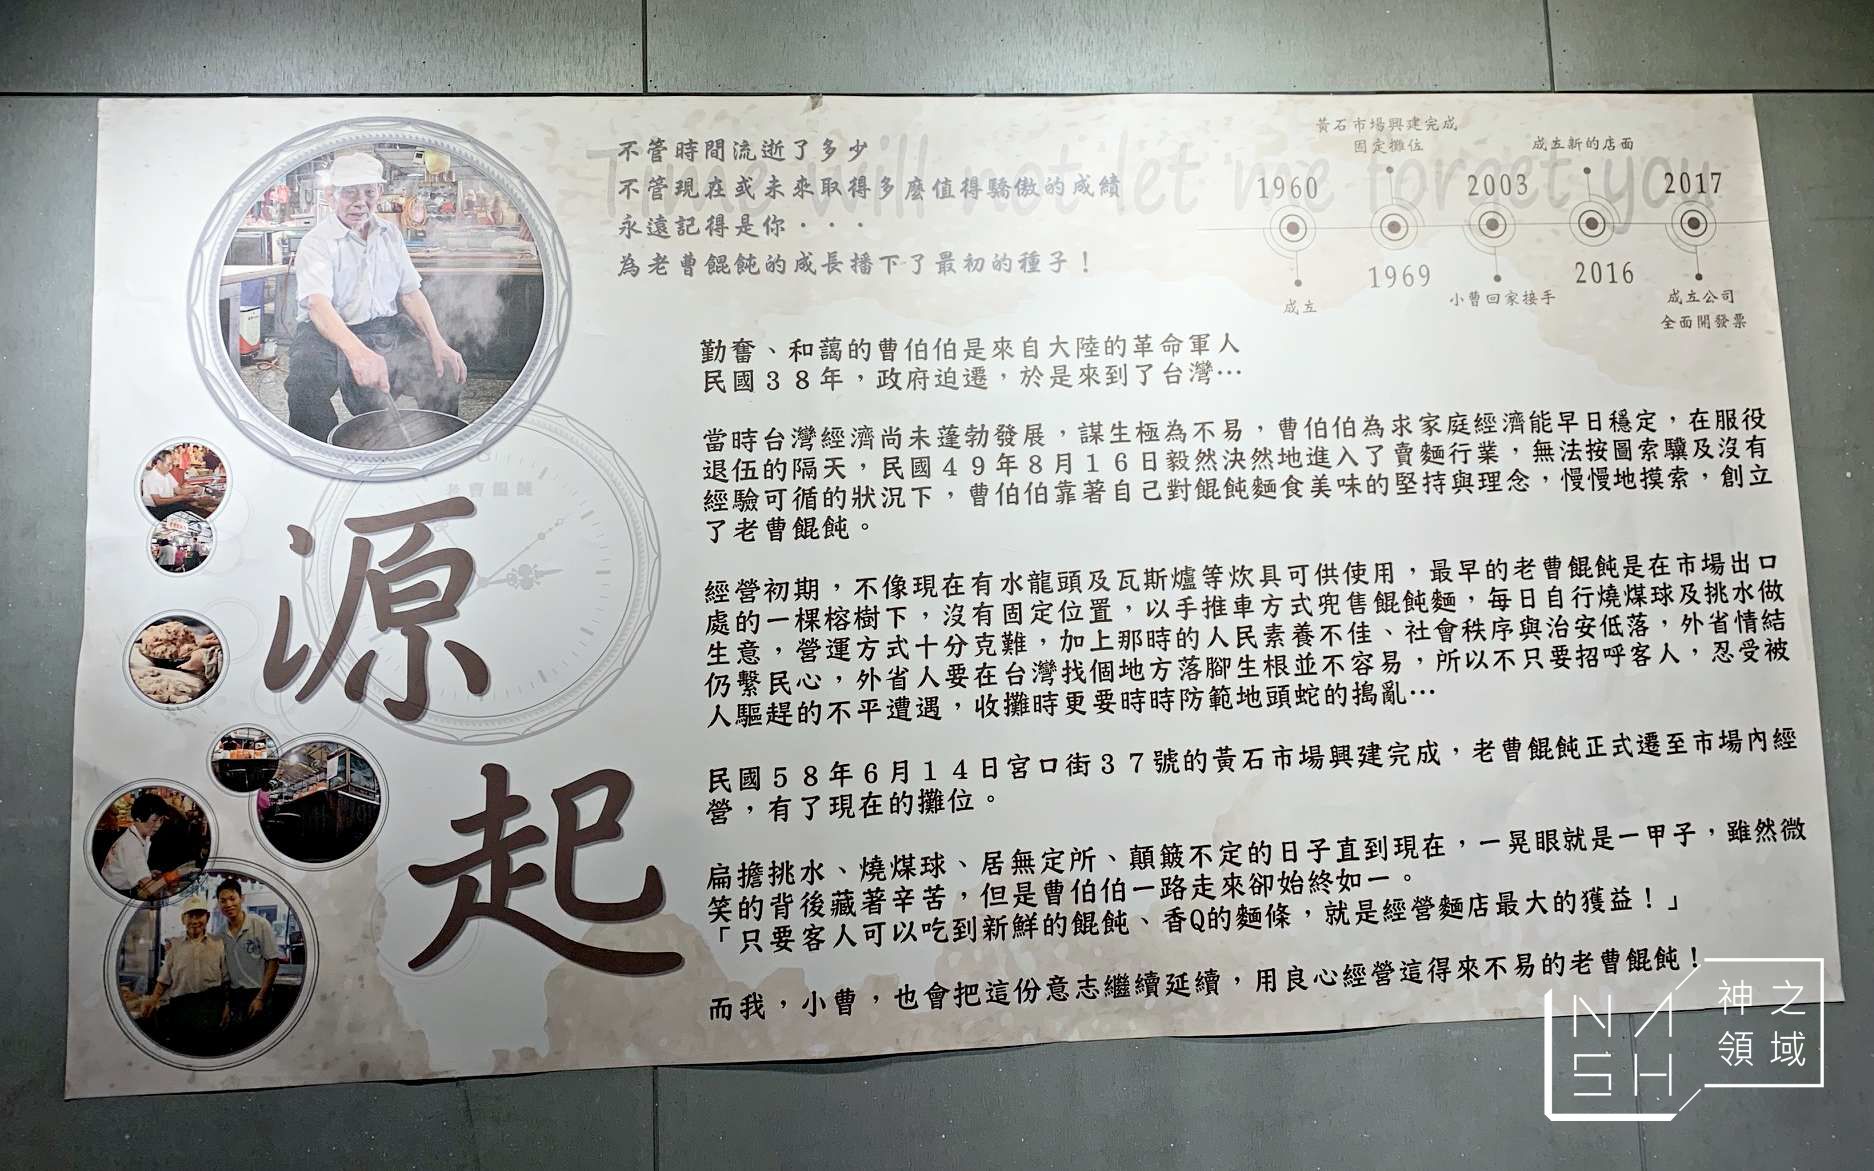 Time will not let me forget you
不管時間流逝了多少
不管現在或未來取得多麼值得驕傲的成績
永遠記得是你・・・
為老曹餛飩的成長播下了最初的種子！
黃石市場興建完成
固定攤位
成立新的店面
1960
2003
2017
1969
2016
成立
小曹回家接手
成立公司
全面開發票
勤奮、和藹的曹伯伯是來自大陸的革命軍人
民國３８年，政府迫遷，於是來到了台灣…
當時台灣經濟尚未蓬勃發展，謀生極為不易，曹伯伯為求家庭經濟能早日穩定，在服役
退伍的隔天，民國４９年８月１６日毅然決然地進入了賣麵行業，無法按圖索驥及沒有
經驗可循的狀況下，曹伯伯靠著自己對餛飩麵食美味的堅持與理念，慢慢地摸索，創立
了老曹餛飩。
經營初期，不像現在有水龍頭及瓦斯爐等炊具可供使用，最早的老曹餛飩是在市場出口
處的一棵榕樹下，沒有固定位置，以手推車方式兜售餛飩麵，每日自行燒煤球及挑水做
生意，營運方式十分克難，加上那時的人民素養不佳、社會秩序與治安低落，外省情結
仍繫民心，外省人要在台灣找個地方落腳生根並不容易，所以不只要招呼客人，忍受被
人驅趕的不平遭遇，收攤時更要時時防範地頭蛇的搗亂…
民國５８年６月１４日宮口街３７號的黃石市場興建完成，老曹餛飩正式遷至市場內經
營，有了現在的攤位。
扁擔挑水、燒煤球、居無定所、顛簸不定的日子直到現在，一晃眼就是一甲子，雖然微
笑的背後藏著辛苦，但是曹伯伯一路走來卻始終如一。
「只要客人可以吃到新鮮的餛飩、香Q的麵條，就是經營麵店最大的獲益！」
而我，小曹，也會把這份意志繼續延續，用良心經營這得來不易的老曹餛飩！
老曹餛飩
源起
NASH
神之
領域